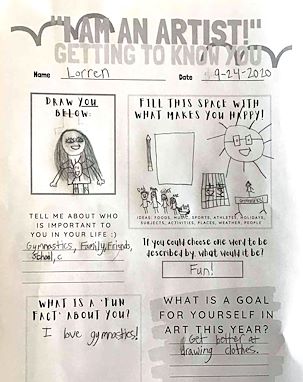 "I AM AN ARTIST!"
GETTING TO KNOW YOU
Name Lorren Date 9-24-2020
DRAW YOU
BELOW:
FILL THIS SPACE WITH
WHAT MAKES YOU HAPPY!
IDEAS: FOODS, MUSIC, SPORTS, ATHLETES, HOLIDAYS,
SUBJECTS, ACTIVITIES, PLACES, WEATHER, PEOPLE
TELL ME ABOUT WHO
IS IMPORTANT TO
YOU IN YOUR LIFE :)
Gymnastics, Family, Friends,
School, c
If you could choose one word to be
described by, what would it be?
Fun!
WHAT IS A 'FUN
FACT' ABOUT YOU?
I love gymnastics!
WHAT IS A GOAL
FOR YOURSELF IN
ART THIS YEAR?
Get better at
drawing clothes.